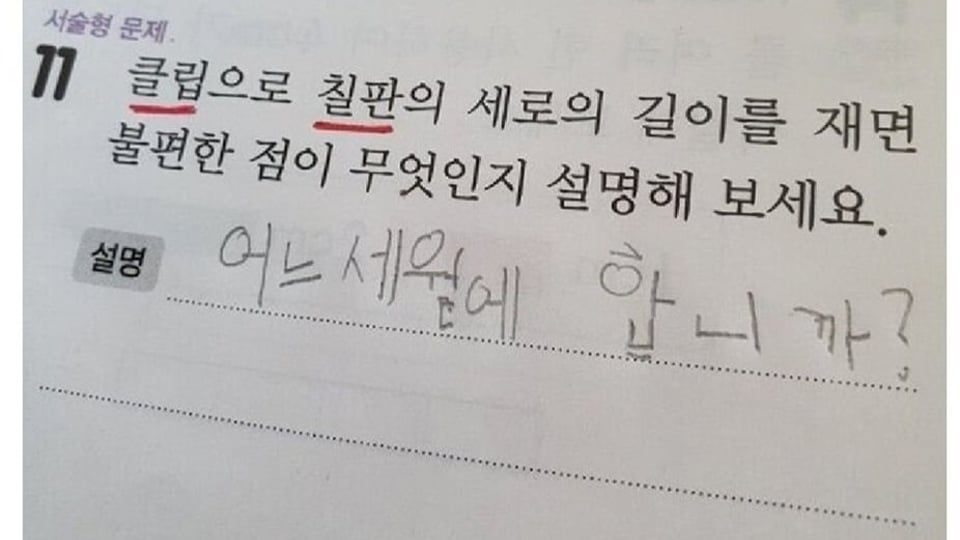 서술형 문제.
11 클립으로 칠판의 세로의 길이를 재면
불편한 점이 무엇인지 설명해 보세요.
설명 어느세월에 합니까?